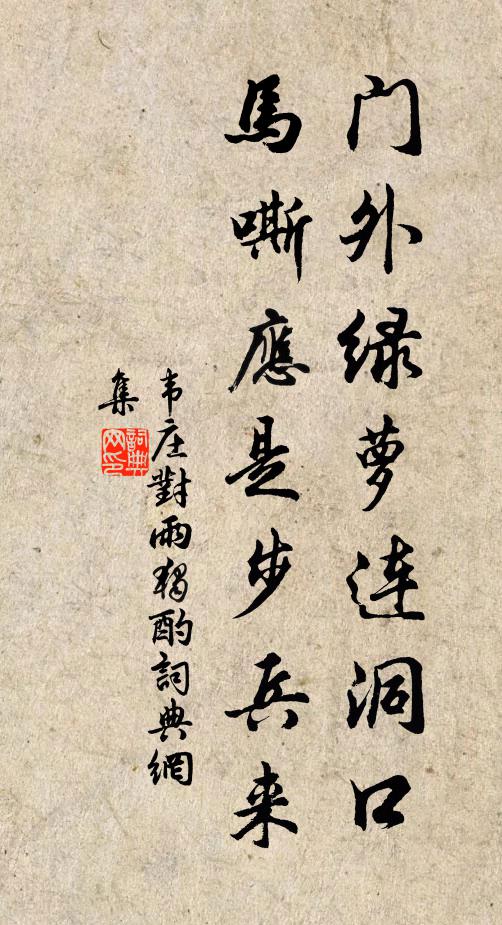 门外绿萝连洞口
馬嘶應是步兵来
韦庄對雨獨酌詞典網
集
詞典网印